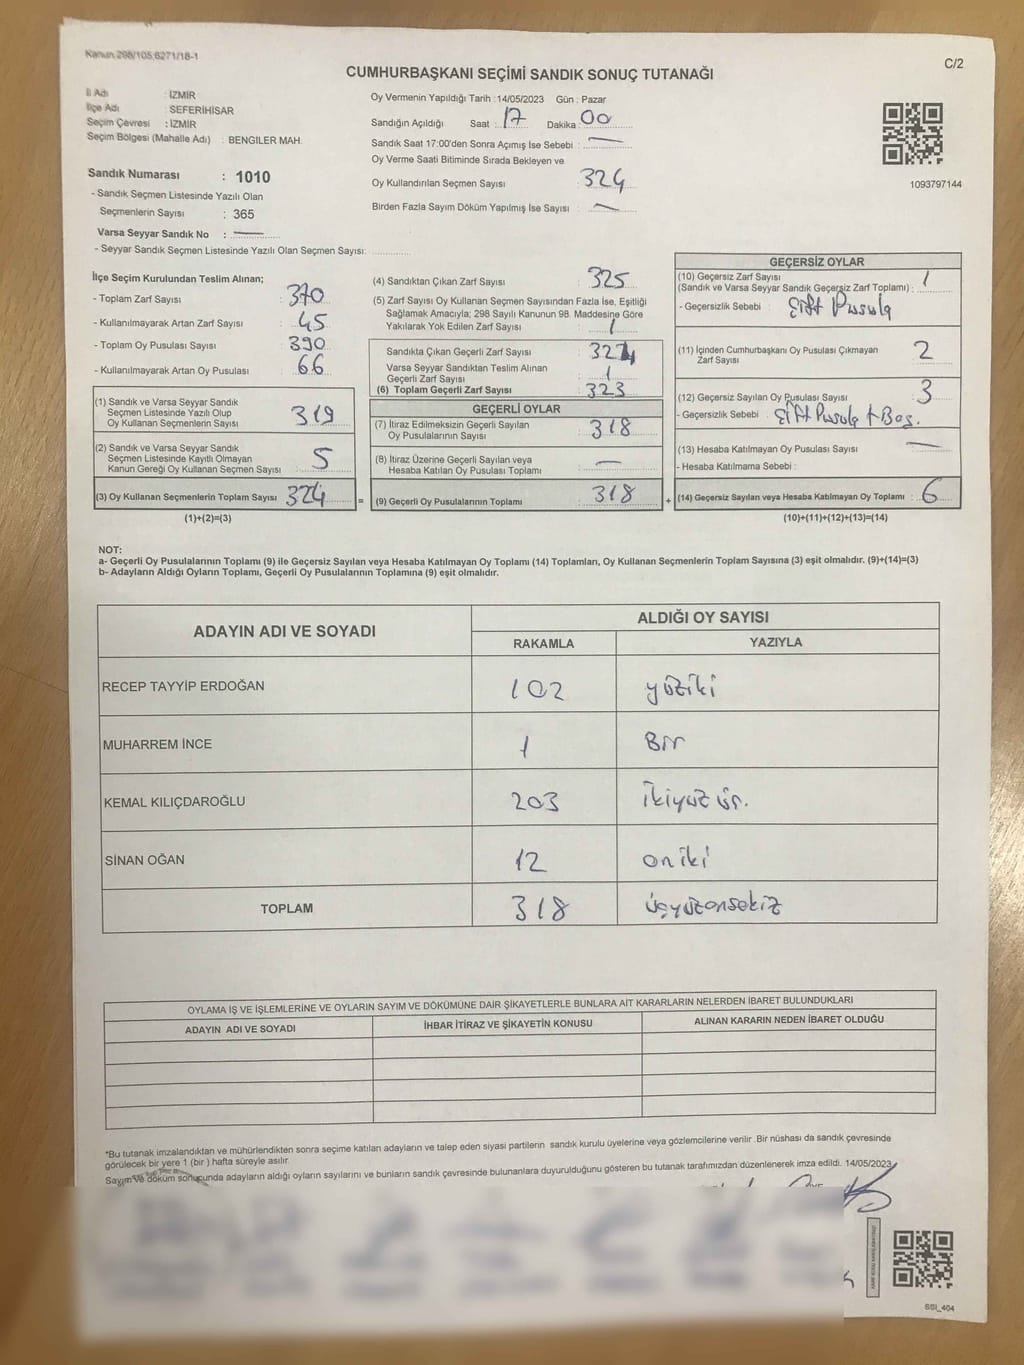 Kanun 298/105,6271/18-1
C/2
CUMHURBAŞKANI SEÇİMİ SANDIK SONUÇ TUTANAĞI
İl Adı : İZMİR
İlçe Adı : SEFERİHİSAR
Seçim Çevresi : İZMİR
Seçim Bölgesi (Mahalle Adı) : BENGILER MAH.
Sandık Numarası : 1010
- Sandık Seçmen Listesinde Yazılı Olan
Seçmenlerin Sayısı : 365
Varsa Seyyar Sandık No : —
- Seyyar Sandık Seçmen Listesinde Yazılı Olan Seçmen Sayısı:
Oy Vermenin Yapıldığı Tarih :14/05/2023 Gün : Pazar
Sandığın Açıldığı Saat : 17 Dakika : 00
Sandık Saat 17:00'den Sonra Açımış İse Sebebi : —
Oy Verme Saati Bitiminde Sırada Bekleyen ve
Oy Kullandırılan Seçmen Sayısı : 324
Birden Fazla Sayım Döküm Yapılmış İse Sayısı : —
1093797144
İlçe Seçim Kurulundan Teslim Alınan;
- Toplam Zarf Sayısı : 370
- Kullanılmayarak Artan Zarf Sayısı : 45
- Toplam Oy Pusulası Sayısı : 390
- Kullanılmayarak Artan Oy Pusulası : 66
(1) Sandık ve Varsa Seyyar Sandık
Seçmen Listesinde Yazılı Olup
Oy Kullanan Seçmenlerin Sayısı : 319
(2) Sandık ve Varsa Seyyar Sandık
Seçmen Listesinde Kayıtlı Olmayan
Kanun Gereği Oy Kullanan Seçmen Sayısı : 5
(3) Oy Kullanan Seçmenlerin Toplam Sayısı : 324
(1)+(2)=(3)
=
(4) Sandıktan Çıkan Zarf Sayısı : 325
(5) Zarf Sayısı Oy Kullanan Seçmen Sayısından Fazla İse, Eşitliği
Sağlamak Amacıyla; 298 Sayılı Kanunun 98. Maddesine Göre
Yakılarak Yok Edilen Zarf Sayısı : 1
Sandıkta Çıkan Geçerli Zarf Sayısı : 324
Varsa Seyyar Sandıktan Teslim Alınan
Geçerli Zarf Sayısı : 1
(6) Toplam Geçerli Zarf Sayısı : 323
GEÇERLİ OYLAR
(7) İtiraz Edilmeksizin Geçerli Sayılan
Oy Pusulalarının Sayısı : 318
(8) İtiraz Üzerine Geçerli Sayılan veya
Hesaba Katılan Oy Pusulası Toplamı : —
(9) Geçerli Oy Pusulalarının Toplamı : 318
+
GEÇERSİZ OYLAR
(10) Geçersiz Zarf Sayısı
(Sandık ve Varsa Seyyar Sandık Geçersiz Zarf Toplamı) : 1
- Geçersizlik Sebebi : Çift Pusula
(11) İçinden Cumhurbaşkanı Oy Pusulası Çıkmayan
Zarf Sayısı : 2
(12) Geçersiz Sayılan Oy Pusulası Sayısı : 3
- Geçersizlik Sebebi : Çift Pusula + Boş.
(13) Hesaba Katılmayan Oy Pusulası Sayısı : —
- Hesaba Katılmama Sebebi :
(14) Geçersiz Sayılan veya Hesaba Katılmayan Oy Toplamı : 6
(10)+(11)+(12)+(13)=(14)
NOT:
a- Geçerli Oy Pusulalarının Toplamı (9) ile Geçersiz Sayılan veya Hesaba Katılmayan Oy Toplamı (14) Toplamları, Oy Kullanan Seçmenlerin Toplam Sayısına (3) eşit olmalıdır. (9)+(14)=(3)
b- Adayların Aldığı Oyların Toplamı, Geçerli Oy Pusulalarının Toplamına (9) eşit olmalıdır.
ADAYIN ADI VE SOYADI
ALDIĞI OY SAYISI
RAKAMLA YAZIYLA
RECEP TAYYİP ERDOĞAN 102 yüziki
MUHARREM İNCE 1 Bir
KEMAL KILIÇDAROĞLU 203 İkiyüz üç.
SİNAN OĞAN 12 oniki
TOPLAM 318 üçyüzonsekiz
OYLAMA İŞ VE İŞLEMLERİNE VE OYLARIN SAYIM VE DÖKÜMÜNE DAİR ŞİKAYETLERLE BUNLARA AİT KARARLARIN NELERDEN İBARET BULUNDUKLARI
ADAYIN ADI VE SOYADI İHBAR İTİRAZ VE ŞİKAYETİN KONUSU ALINAN KARARIN NEDEN İBARET OLDUĞU
*Bu tutanak imzalandıktan ve mühürlendikten sonra seçime katılan adayların ve talep eden siyasi partilerin sandık kurulu üyelerine veya gözlemcilerine verilir .Bir nüshası da sandık çevresinde
görülecek bir yere 1 (bir ) hafta süreyle asılır.
Sayım ve döküm sonucunda adayların aldığı oyların sayılarını ve bunların sandık çevresinde bulunanlara duyurulduğunu gösteren bu tutanak tarafımızdan düzenlenerek imza edildi. 14/05/2023
SSI_404